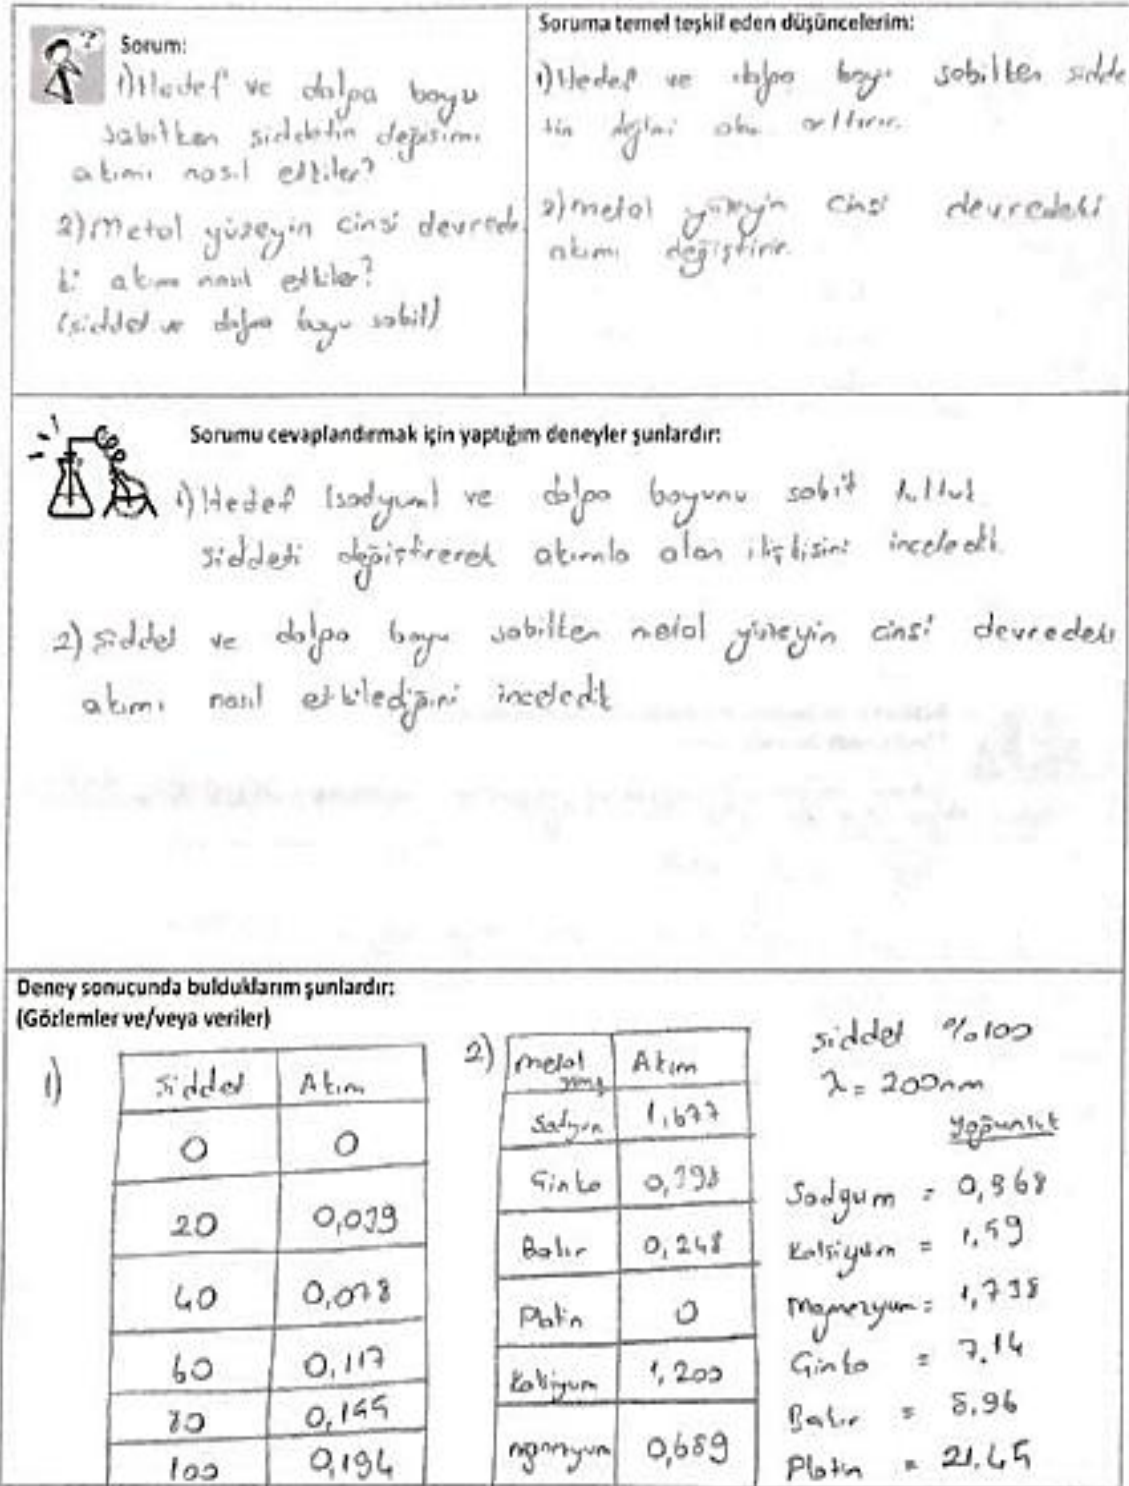 Sorum:
1) Hedef ve dalga boyu
sabitken şiddetin değişimi
akımı nasıl etkiler?
2) Metal yüzeyin cinsi devrede
ki akımı nasıl etkiler?
(şiddet ve dalga boyu sabit)
Soruma temel teşkil eden düşüncelerim:
1) Hedef ve dalga boyu sabitken şidde
tin arttırır.
2) metal yüzeyin cinsi devredeki
akımı değiştirir.
Sorumu cevaplandırmak için yaptığım deneyler şunlardır:
1) Hedef (sodyum) ve dalga boyunu sabit tuttuk
şiddeti değiştirerek akımla olan ilişkisini inceledik.
2) şiddet ve dalga boyu sabitken metal yüzeyin cinsi devredeki
akımı nasıl etkilediğini inceledik
Deney sonucunda bulduklarım şunlardır:
(Gözlemler ve/veya veriler)
1)
Şiddet Akım
0 0
20 0,039
40 0,078
60 0,117
80 0,155
100 0,194
2)
metal Akım
Sodyum 1,677
Çinko 0,398
Bakır 0,248
Platin 0
Kalsiyum 1,200
magnezyum 0,689
şiddet %100
λ = 200nm
yoğunluk
Sodyum = 0,968
Kalsiyum = 1,59
Magnezyum = 1,738
Çinko = 7.14
Bakır = 8.96
Platin = 21.45